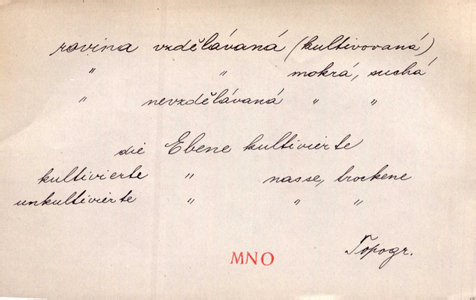 rovina vzdělávaná (kultivovaná)
" " mokrá, suchá
" nevzdělávaná " "
die Ebene kultivierte
kultivierte " nasse, trockene
unkultivierte " " "
Topogr.
MNO